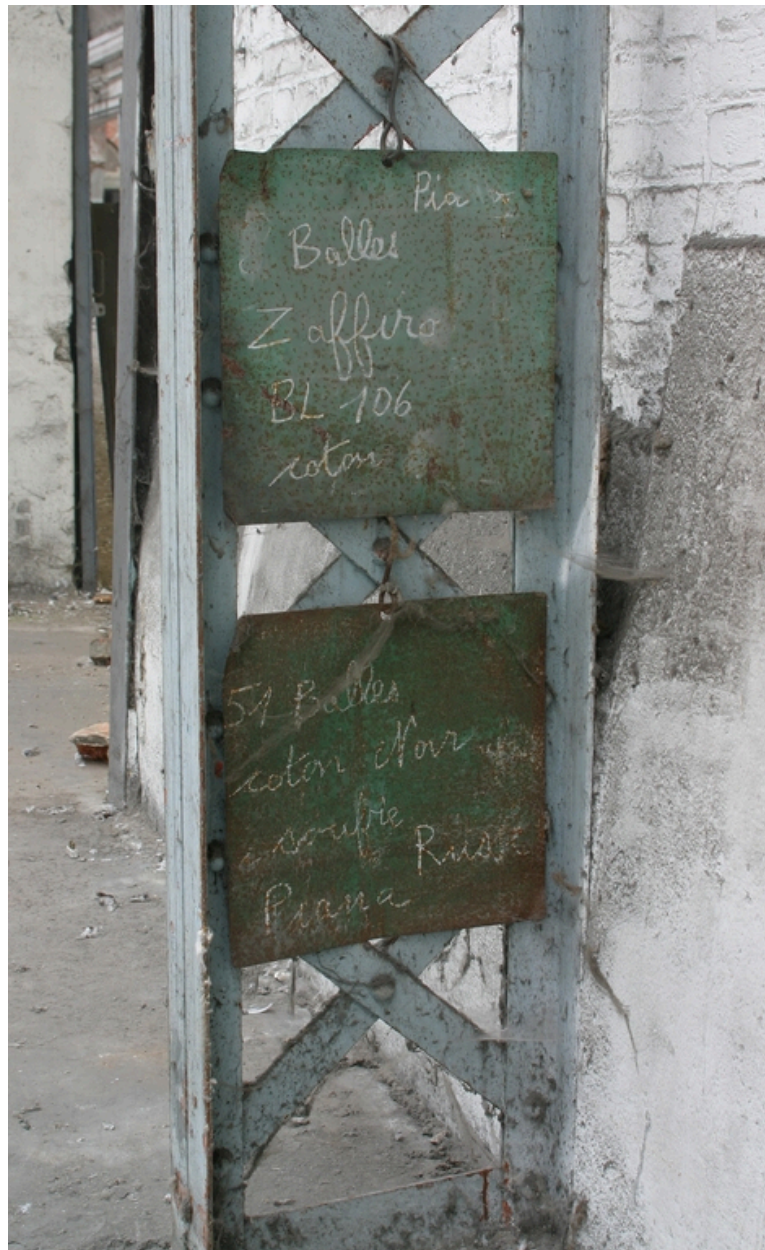 Pia
Balles
Zaffiro
BL 106
coton
51 Balles
coton Noir
soufie
Piana